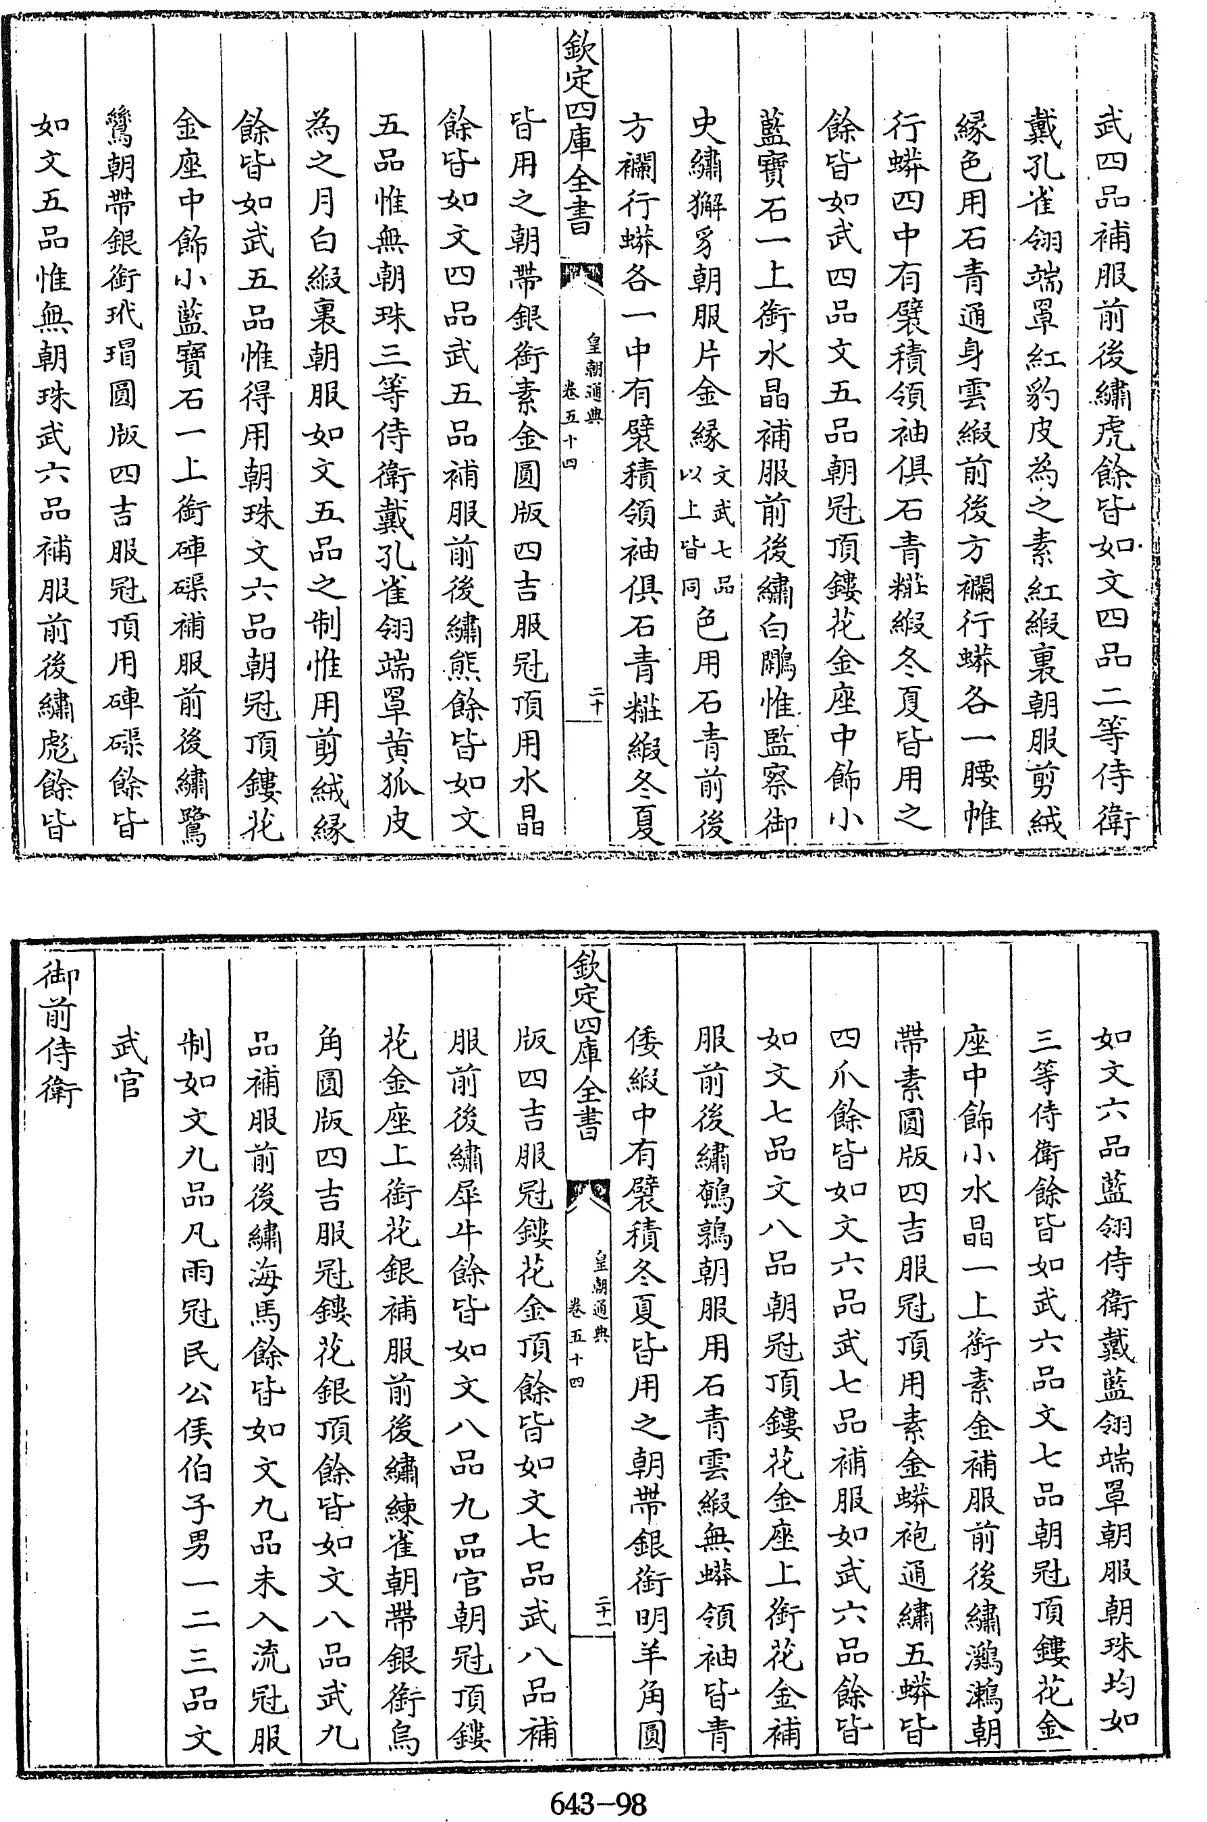 武四品補服前後繡虎餘皆如文四品二等侍衛
戴孔雀翎端罩紅豹皮為之素紅緞裏朝服剪絨
緣色用石青通身雲緞前後方襴行蟒各一腰帷
行蟒四中有襞積領袖俱石青糚緞冬夏皆用之
餘皆如武四品文五品朝冠頂鏤花金座中飾小
藍寶石一上銜水晶補服前後繡白鷴惟監察御
史繡獬豸朝服片金緣文武七品以上皆同色用石青前後
方襴行蟒各一中有襞積領袖俱石青糚緞冬夏
欽定四庫全書
皇朝通典
卷五十四
二十
皆用之朝帶銀銜素金圓版四吉服冠頂用水晶
餘皆如文四品武五品補服前後繡熊餘皆如文
五品惟無朝珠三等侍衛戴孔雀翎端罩黄狐皮
為之月白緞裏朝服如文五品之制惟用剪絨緣
餘皆如武五品惟得用朝珠文六品朝冠頂鏤花
金座中飾小藍寶石一上銜硨磲補服前後繡鷺
鷥朝帶銀銜玳瑁圓版四吉服冠頂用硨磲餘皆
如文五品惟無朝珠武六品補服前後繡彪餘皆
如文六品藍翎侍衛戴藍翎端罩朝服朝珠均如
三等侍衛餘皆如武六品文七品朝冠頂鏤花金
座中飾小水晶一上銜素金補服前後繡鸂鶒朝
帶素圓版四吉服冠頂用素金蟒袍通繡五蟒皆
四爪餘皆如文六品武七品補服如武六品餘皆
如文七品文八品朝冠頂鏤花金座上銜花金補
服前後繡鵪鶉朝服用石青雲緞無蟒領袖皆青
倭緞中有襞積冬夏皆用之朝帶銀銜明羊角圓
欽定四庫全書
皇朝通典
卷五十四
二十一
版四吉服冠鏤花金頂餘皆如文七品武八品補
服前後繡犀牛餘皆如文八品九品官朝冠頂鏤
花金座上銜花銀補服前後繡練雀朝帶銀銜烏
角圓版四吉服冠鏤花銀頂餘皆如文八品武九
品補服前後繡海馬餘皆如文九品未入流冠服
制如文九品凡雨冠民公侯伯子男一二三品文
武官
御前侍衛
643-98